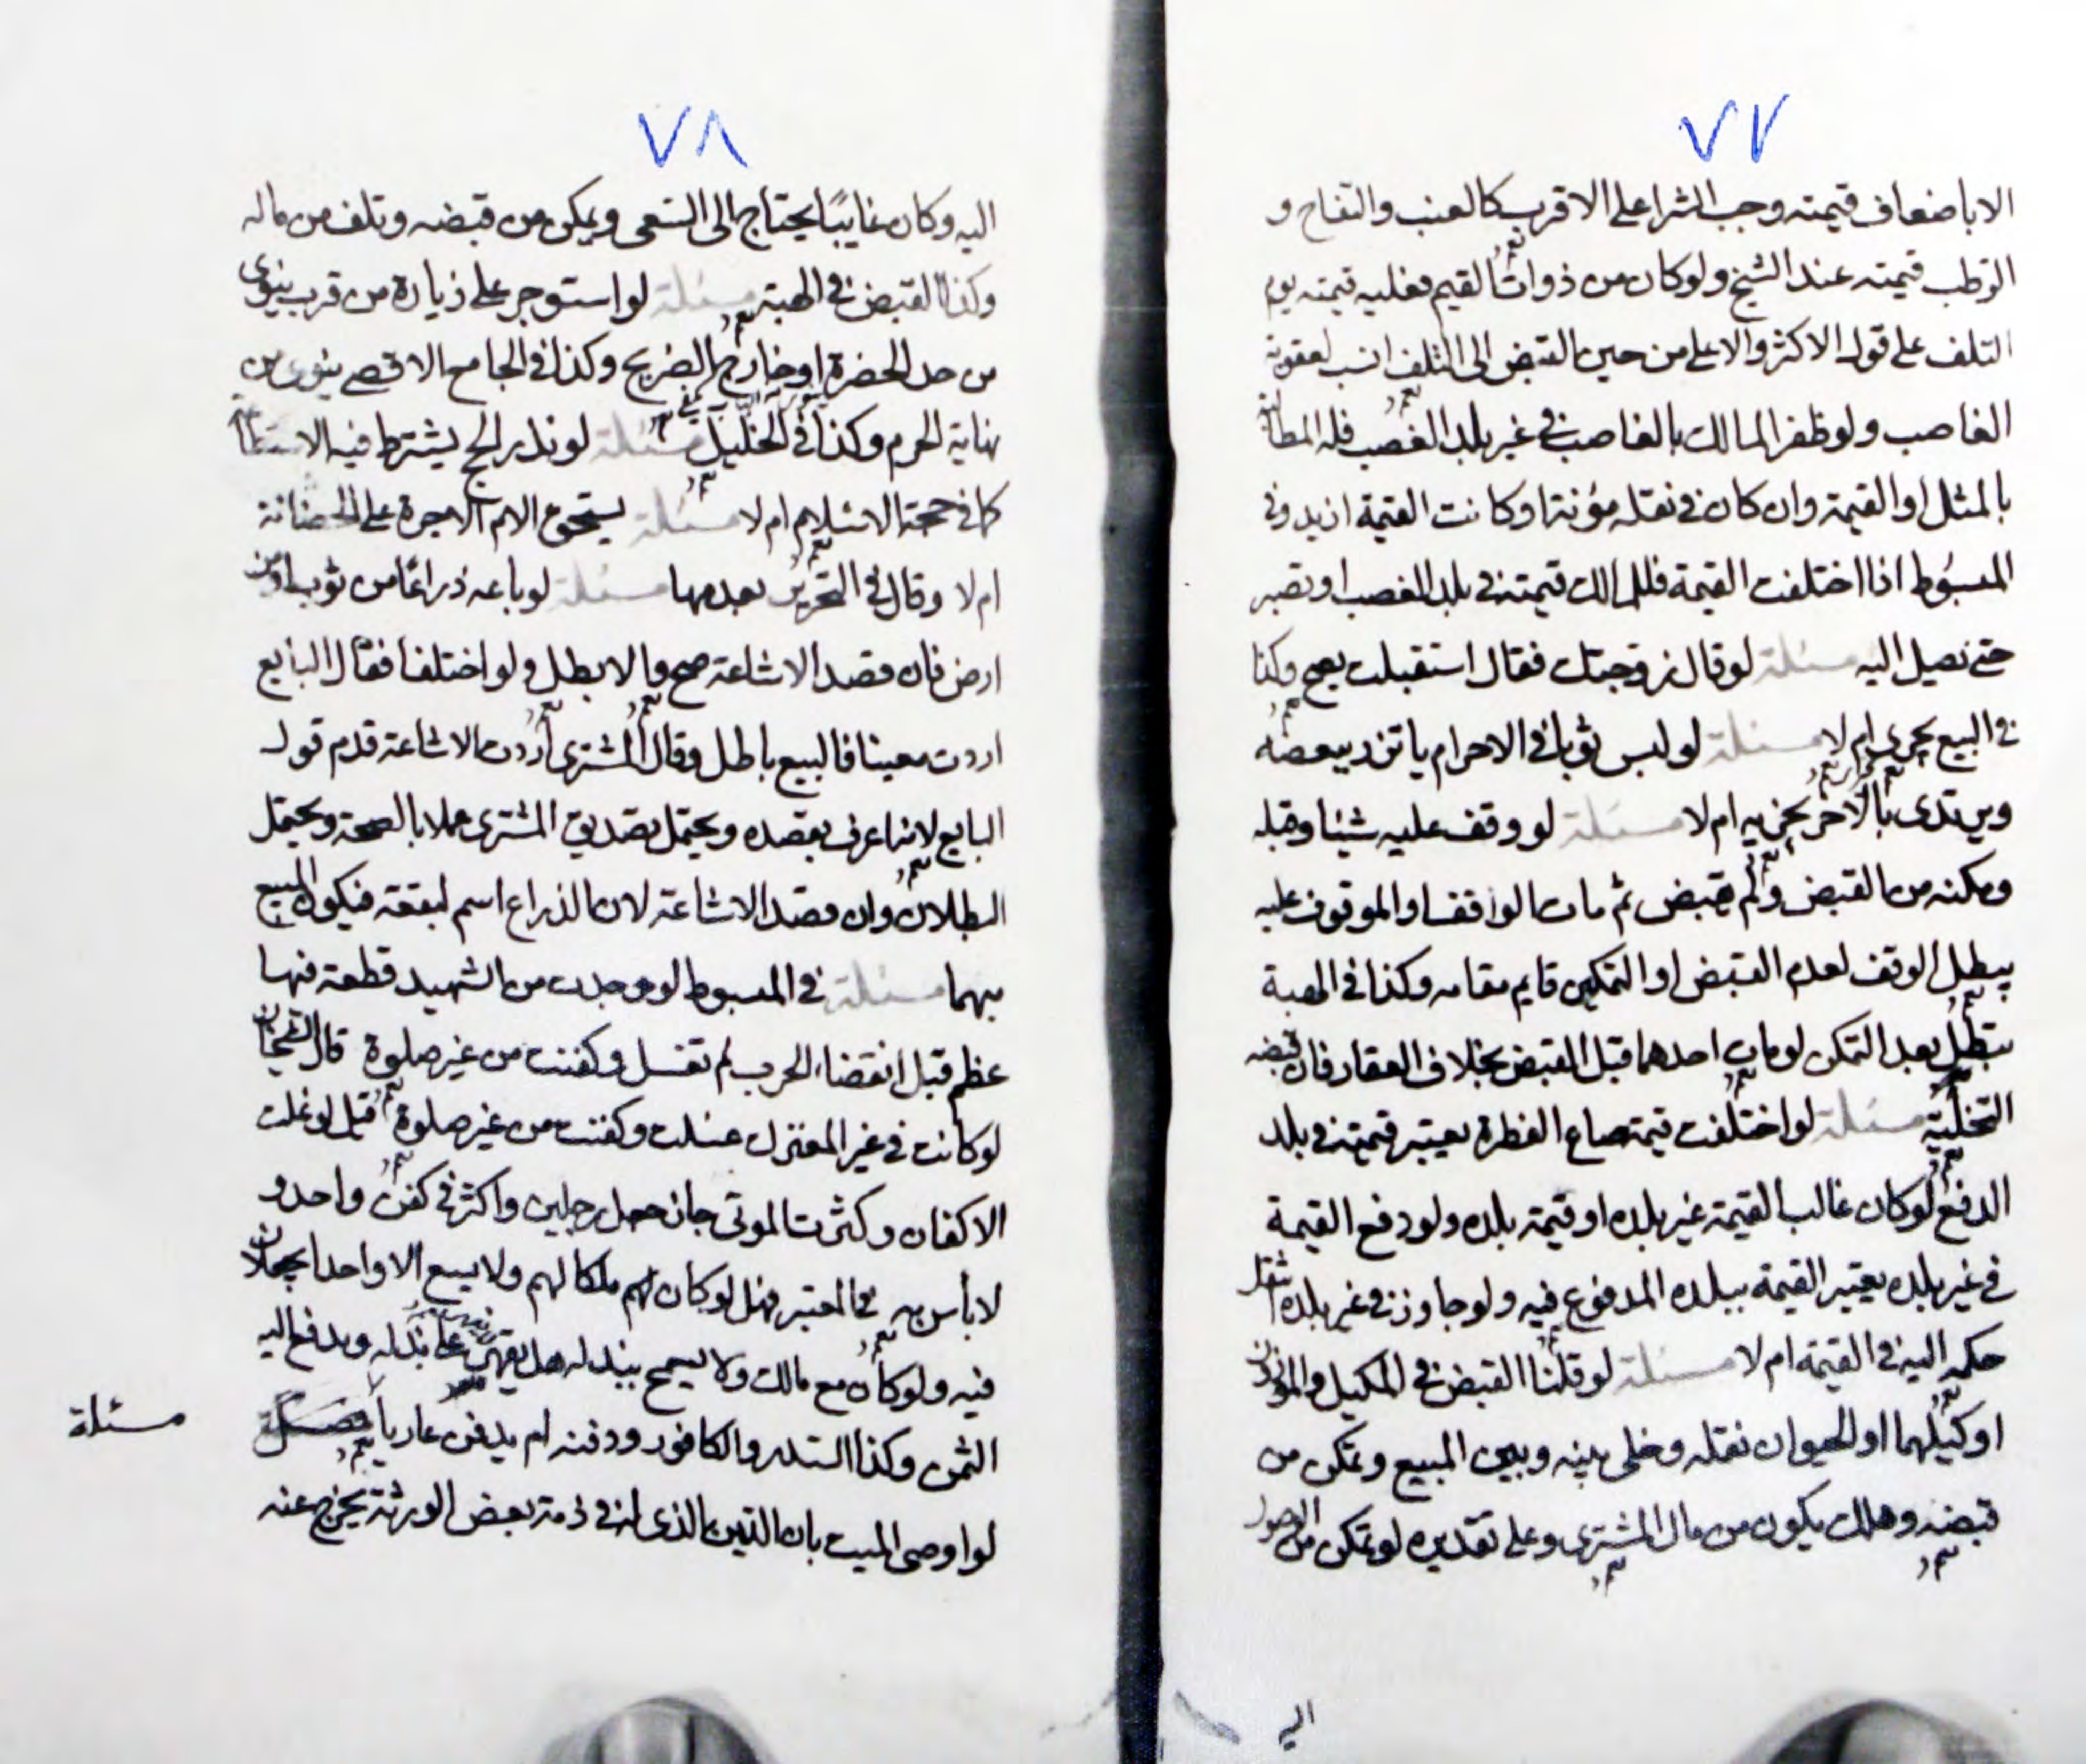 ٧٧
الا باضعاف قيمته وجب الشرا على الاقرب كالعنب والتفاح و
الرطب قيمته عند الشيخ ولو كان من ذوات القيم فعليه قيمته يوم
التلف على قول الاكثر والاعلى من حين القبض الى التلف انسب لعقوبة
الغاصب ولو ظفر المالك بالغاصب في غير بلد الغصب فله المطالبة
بالمثل او القيمة وان كان في نقله مؤنة او كانت القيمة ازيد وفي
المبسوط اذا اختلفت القيمة فللمالك قيمته في بلد الغصب او تصبر
حتى تصيل اليه مسئلة لو قال زوجتك فقال استقبلت يصح وكذا
في البيع يجري ام لا مسئلة لو لبس ثوبا في الاحرام ياتزر ببعضه
ويرتدى بالاخر يجزيه ام لا مسئلة لو وقف عليه شيئا وقبله
ومكنه من القبض ولم يقبض ثم مات الواقف او الموقوف عليه
يبطل الوقف لعدم القبض او التمكين قايم مقامه وكذا في الهبة
يبطل بعد التمكن لو مات احدهما قبل القبض بخلاف العقار فان قبضه
التخلية مسئلة لو اختلفت قيمة صاع الفطرة يعتبر قيمته في بلد
الدفع لو كان غالب القيمة غير بلده او قيمة بلده ولو دفع القيمة
في غير بلده يعتبر القيمة ببلده المدفوع فيه ولو جاوز في غير بلده انتقل
حكمه اليه في القيمة ام لا مسئلة لو قلنا القبض في المكيل والموزون
او كيلهما او الحيوان نقله وخلى بينه وبين المبيع وتمكن من
قبضه وهلك يكون من مال المشترى وعلى تقديره لو تمكن من الوصول
اليه
٧٨
اليه وكان غايبًا يحتاج الى السعى ويمكن من قبضه وتلف من ماله
وكذا القبض في الهبة مسئلة لو استوجر على زيارة من قرب ينوى
من حد الحضرة او خارج الضريح وكذا في الجامع الاقصى ينوى من
نهاية الحرم وكذا في الخليل مسئلة لو نذر الحج يشترط فيه الاستطاعة
كما في حجة الاسلام ام لا مسئلة يستحق الام الاجرة على الحضانة
ام لا وقال في التحرير بعدمها مسئلة لو باعه ذراعًا من ثوب او من
ارض فان قصد الاشاعة صح والا بطل ولو اختلفا فقال البايع
اردت معينا فالبيع باطل وقال المشترى اردت الاشاعة قدم قول
البايع لانه اعرف بقصده ويحتمل تصديق المشترى عملا بالصحة ويحتمل
البطلان وان قصد الاشاعة لان الذراع اسم لبقعة فيكون المبيع
مبهما مسئلة في المبسوط لو وجدت من الشهيد قطعة فيها
عظم قبل انقضاء الحرب لم تغسل وكفنت من غير صلوة قال الشيخان
لو كانت في غير المعترك غسلت وكفنت من غير صلوة قيل لو غلت
الاكفان وكثرت الموتى جاز جعل رجلين واكثر في كفن واحد و
لا بأس به في المعتبر فهل لو كان لهم ملكا لهم ولا يسع الا واحدا يجعلان
فيه ولو كان مع مالك ولا يسمح ببذله هل يقهر على بذله ويدفع اليه
الثمن وكذا السدر والكافور ودفنه ام يدفن عاريا
مسئلة
لو اوصى الميت بان الدين الذى له في ذمة بعض الورثة يخرج عنه